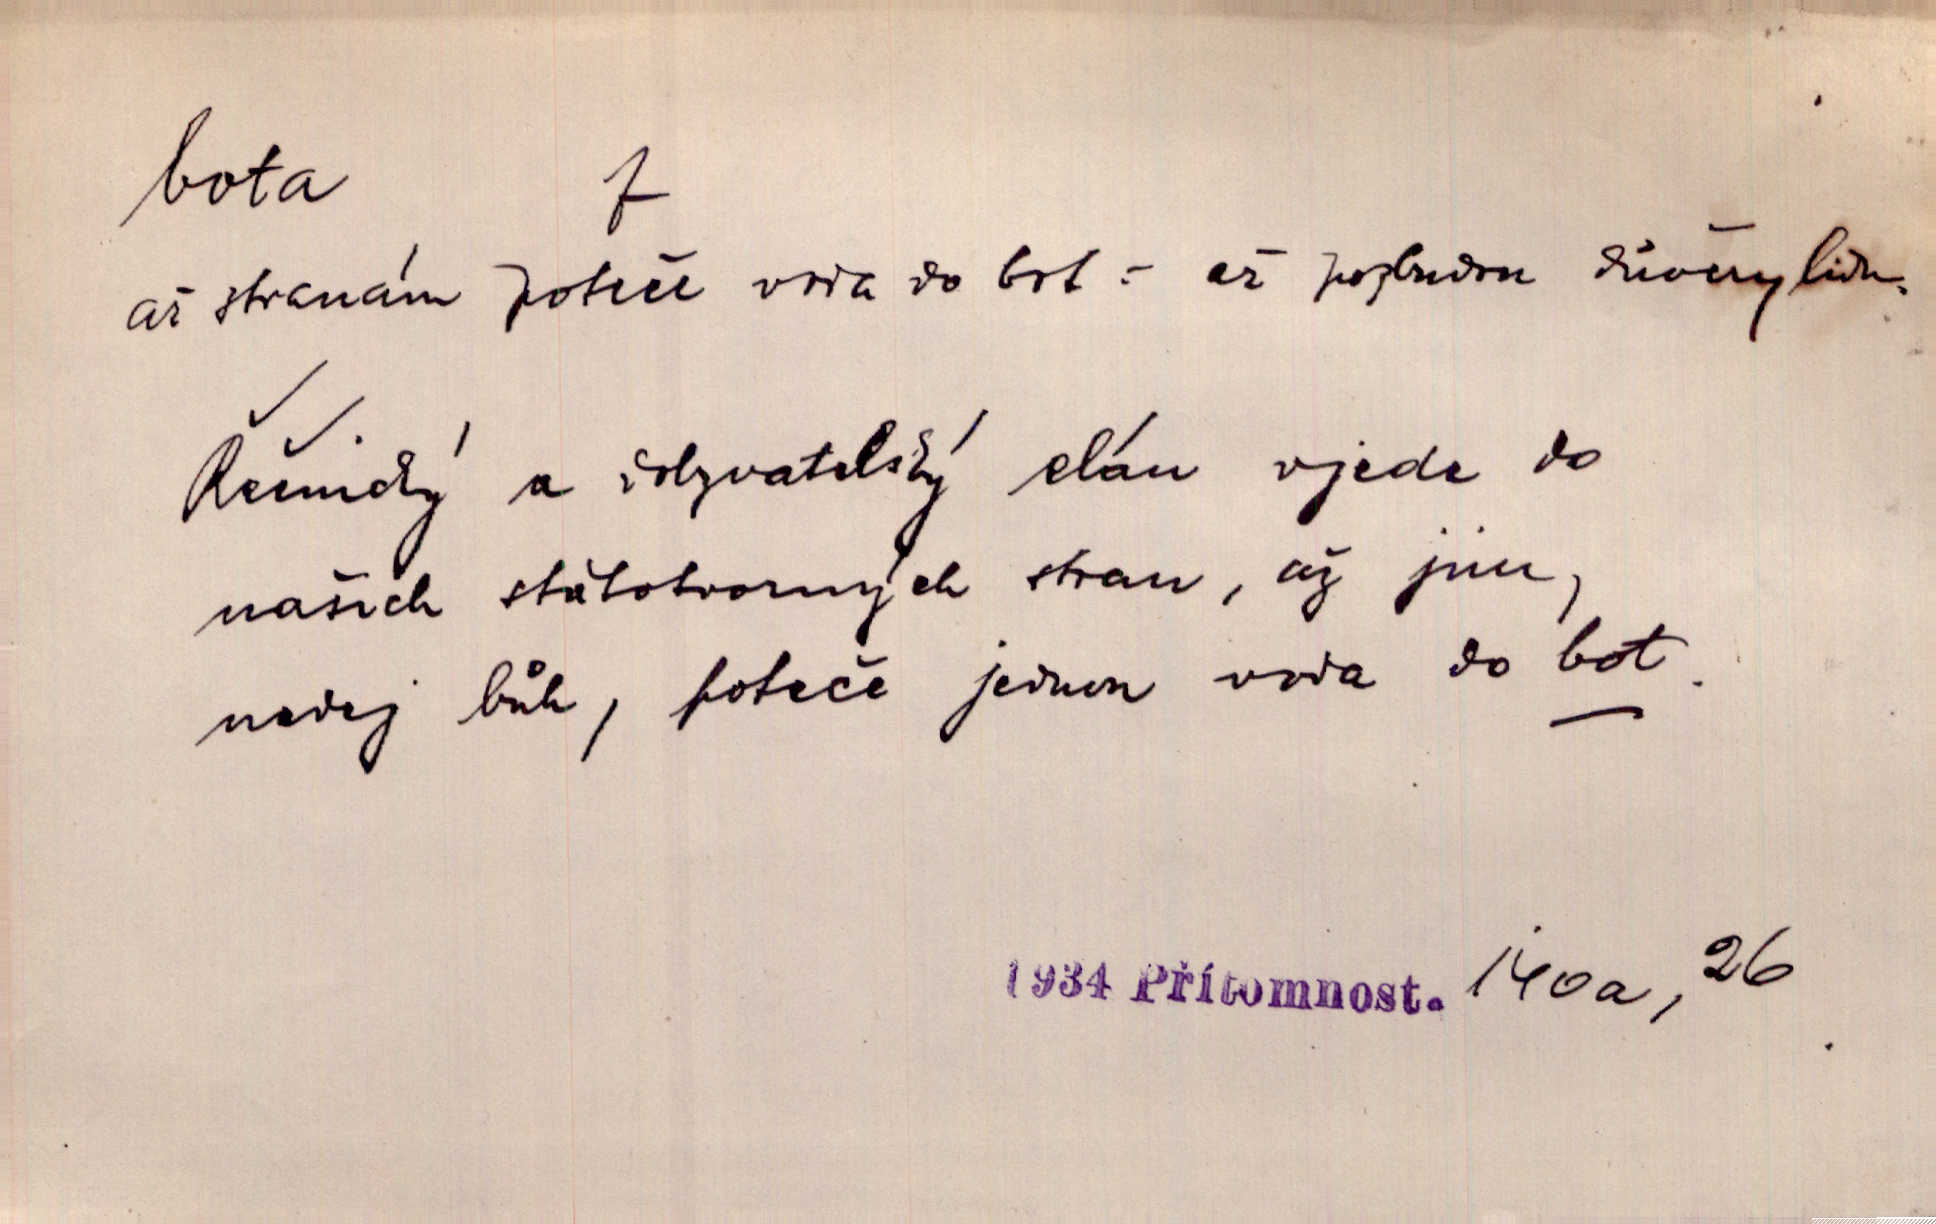 bota f
až stranám poteče voda do bot = až pozbudou důvěry lidu.
Řečnický a dobyvatelský elán vjede do
našich státotvorných stran, až jim,
nedej bůh, poteče jednou voda do bot.
1934 Přítomnost. 140a, 26